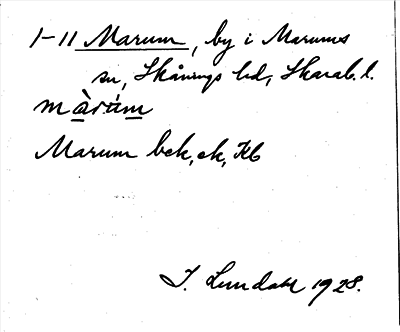 1-11 Marum, by i Marums
sn, Skånings hd, Skarab. l.
màrúm
Marum bck, ek, Kb
I. Lundahl 1928.